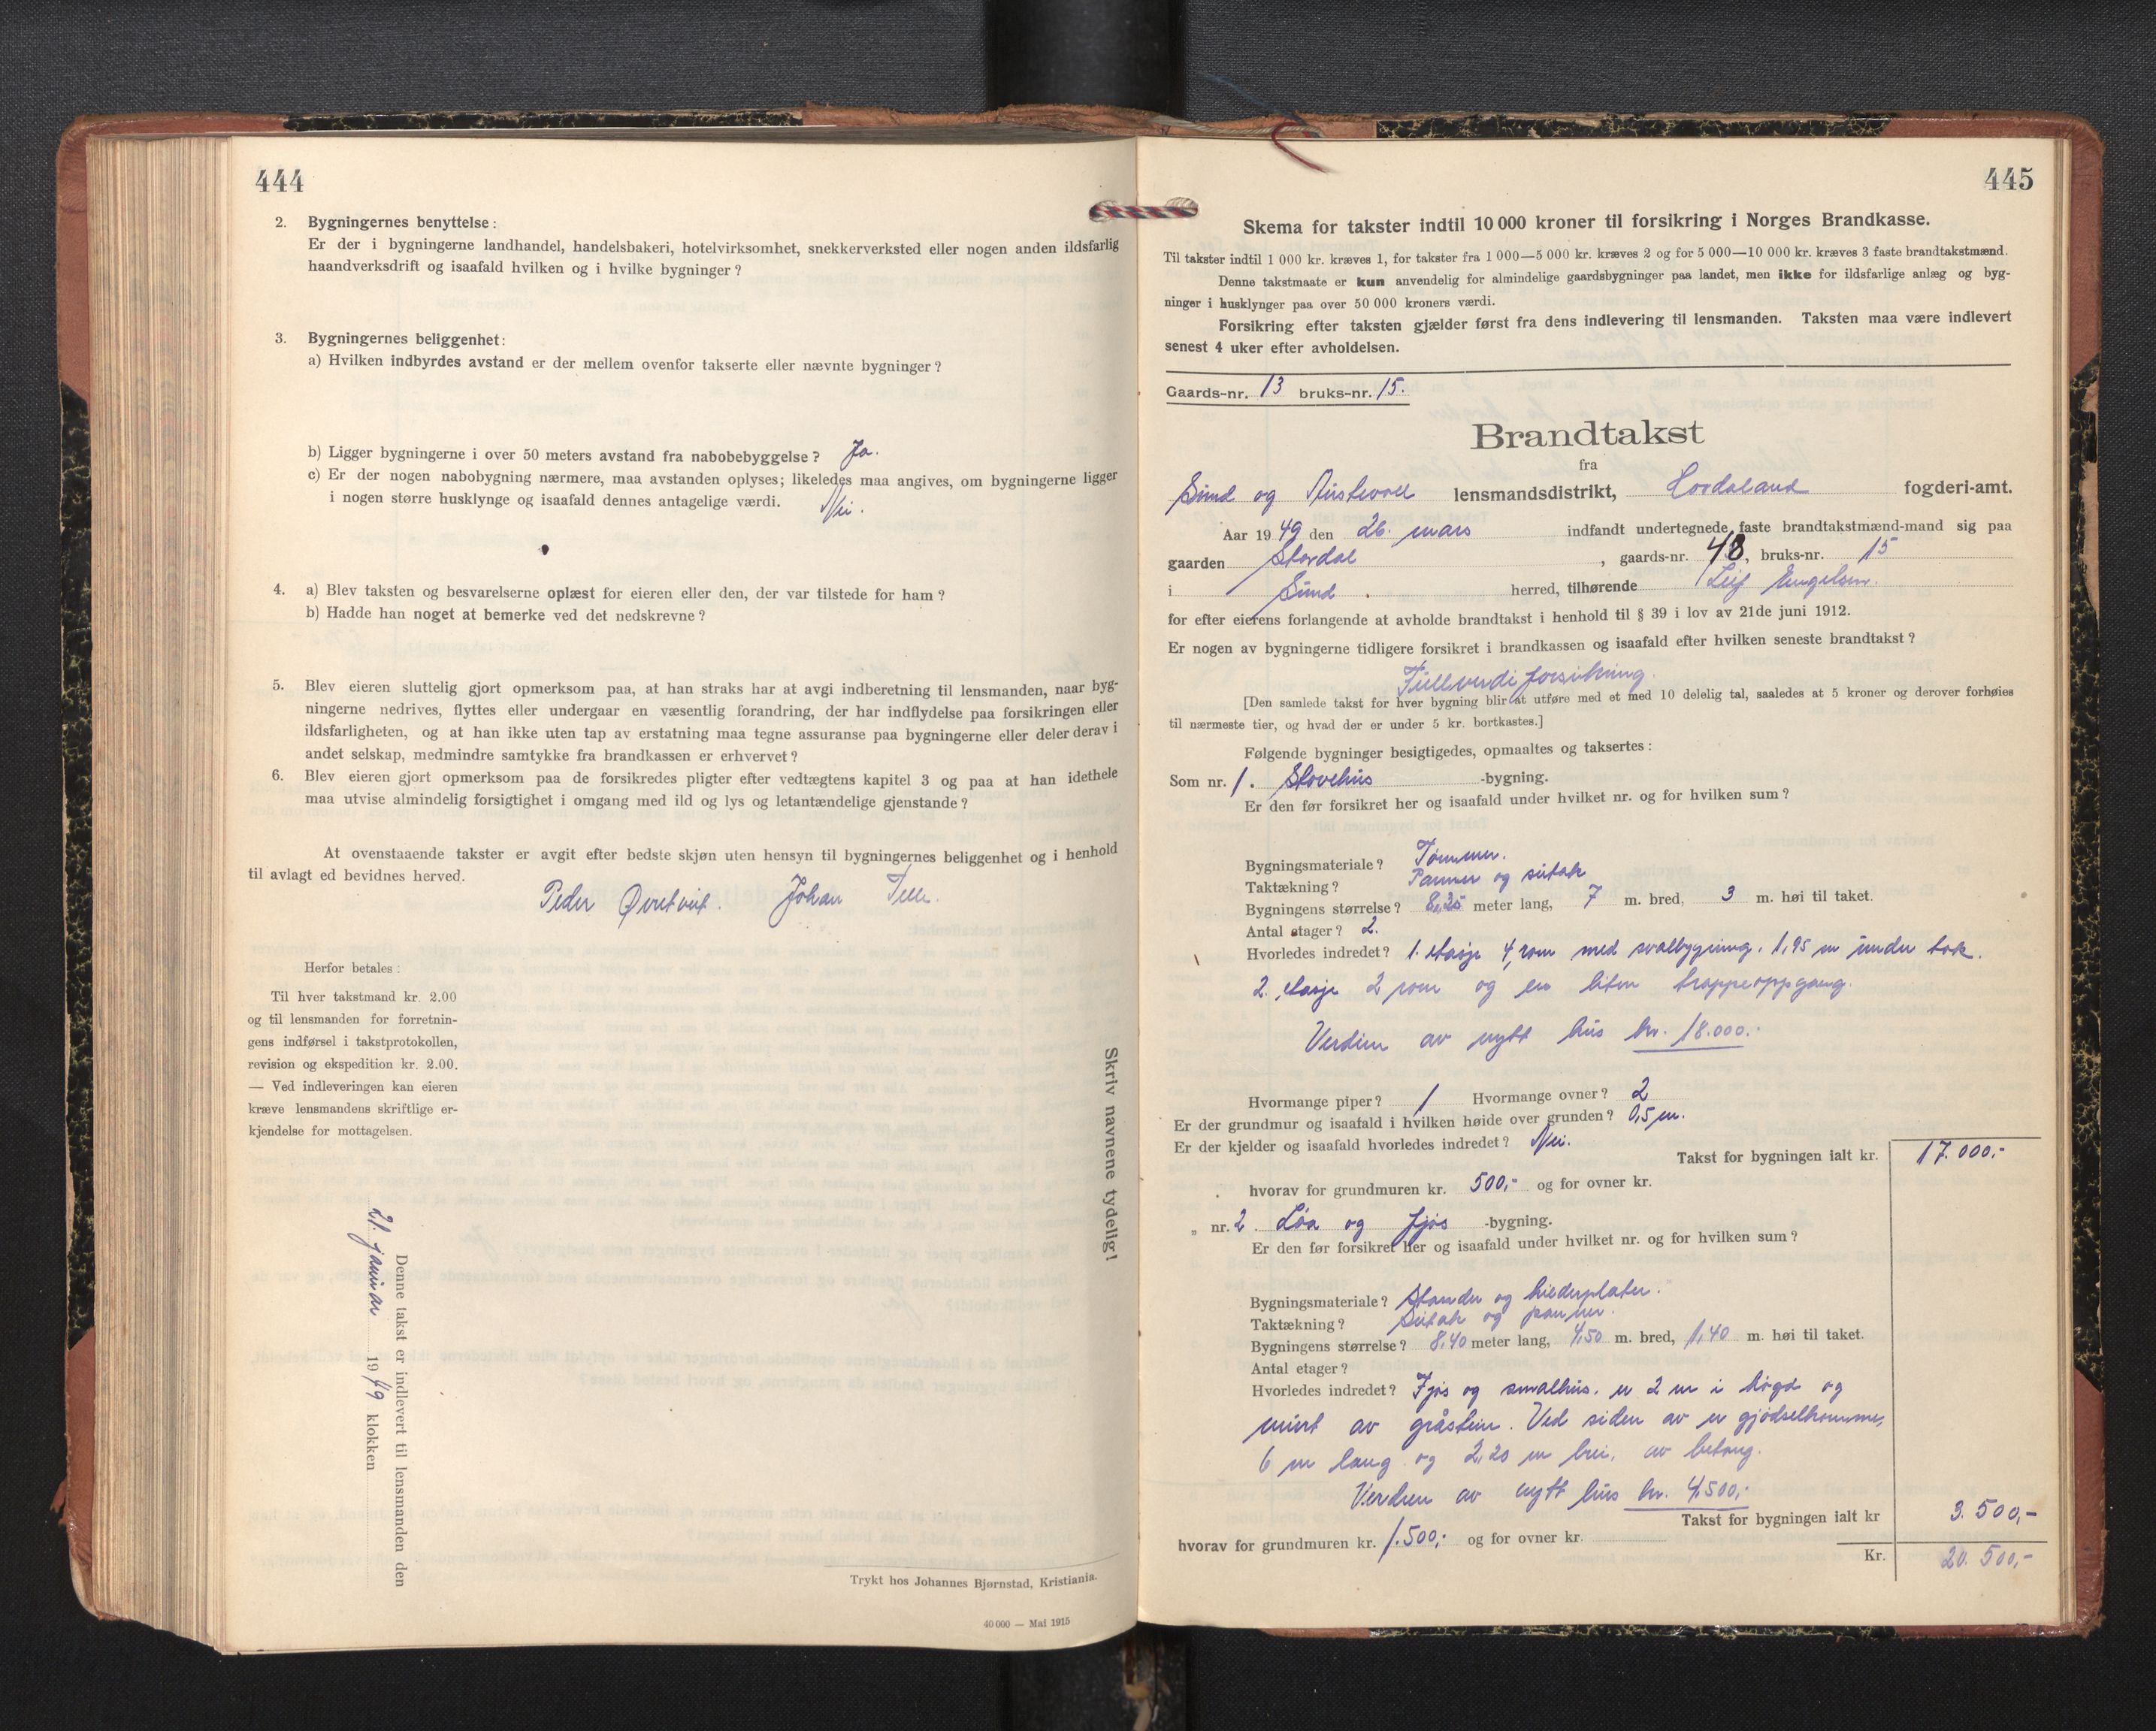 444
2. Bygningernes benyttelse:
Er der i bygningerne landhandel, handelsbakeri, hotelvirksomhet, snekkerverksted eller nogen anden ildsfarlig
haandverksdrift og isaafald hvilken og i hvilke bygninger?
3. Bygningernes beliggenhet:
a) Hvilken indbyrdes avstand er der mellem ovenfor takserte eller nævnte bygninger?
b) Ligger bygningerne i over 50 meters avstand fra nabobebyggelse? Ja.
c) Er der nogen nabobygning nærmere, maa avstanden oplyses; likeledes maa angives, om bygningerne ligger
i nogen større husklynge og isaafald dennes antagelige værdi. Nei.
4. a) Blev taksten og besvarelserne oplæst for eieren eller den, der var tilstede for ham?
b) Hadde han noget at bemerke ved det nedskrevne?
5. Blev eieren sluttelig gjort opmerksom paa, at han straks har at avgi indberetning til lensmanden, naar byg-
ningerne nedrives, flyttes eller undergaar en væsentlig forandring, der har indflydelse paa forsikringen eller
ildsfarligheten, og at han ikke uten tap av erstatning maa tegne assuranse paa bygningerne eller deler derav i
andet selskap, medmindre samtykke fra brandkassen er erhvervet?
6. Blev eieren gjort opmerksom paa de forsikredes pligter efter vedtægtens kapitel 3 og paa at han idethele
maa utvise almindelig forsigtighet i omgang med ild og lys og letantændelige gjenstande?
At ovenstaaende takster er avgit efter bedste skjøn uten hensyn til bygningernes beliggenhet og i henhold
til avlagt ed bevidnes herved.
Peder Johan
Herfor betales:
Til hver takstmand kr. 2.00
og til lensmanden for forretnin-
gens indførsel i takstprotokollen,
revision og ekspedition kr. 2.00.
— Ved indleveringen kan eieren
kræve lensmandens skriftlige er-
kjendelse for mottagelsen.
Skriv navnene tydelig!
Denne takst er indlevert til lensmanden den
21. januar 1949 klokken
Trykt hos Johannes Bjørnstad, Kristiania.
40 000 — Mai 1915
445
Skema for takster indtil 10 000 kroner til forsikring i Norges Brandkasse.
Til takster indtil 1 000 kr. kræves 1, for takster fra 1 000—5 000 kr. kræves 2 og for 5 000—10 000 kr. kræves 3 faste brandtakstmænd.
Denne takstmaate er kun anvendelig for almindelige gaardsbygninger paa landet, men ikke for ildsfarlige anlæg og byg-
ninger i husklynger paa over 50 000 kroners værdi.
Forsikring efter taksten gjælder først fra dens indlevering til lensmanden. Taksten maa være indlevert
senest 4 uker efter avholdelsen.
Gaards-nr. 13 bruks-nr. 15.
Brandtakst
fra
Sund og Austevoll lensmandsdistrikt, Hordaland fogderi-amt.
Aar 1949 den 26. mars indfandt undertegnede faste brandtakstmænd-mand sig paa
gaarden Stordal, gaards-nr. 48, bruks-nr. 15
i Sund. herred, tilhørende Leif Engelsen.
for efter eierens forlangende at avholde brandtakst i henhold til § 39 i lov av 21de juni 1912.
Er nogen av bygningerne tidligere forsikret i brandkassen og isaafald efter hvilken seneste brandtakst?
Fullverdiforsikring.
[Den samlede takst for hver bygning blir at utføre med et med 10 delelig tal, saaledes at 5 kroner og derover forhøies
til nærmeste tier, og hvad der er under 5 kr. bortkastes.]
Følgende bygninger besigtigedes, opmaaltes og taksertes:
Som nr. 1. Stovehus -bygning.
Er den før forsikret her og isaafald under hvilket nr. og for hvilken sum?
Bygningsmateriale? Tømmer.
Taktækning? Panner og sutak
Bygningens størrelse? 8,25 meter lang, 7 m. bred, 3 m. høi til taket.
Antal etager? 2.
Hvorledes indredet? 1. etasje 4 rom med svalbygning. 1,95 m under tak.
2. etasje 2 rom og en liten trappeoppgang.
Verdien av nytt hus kr. 18.000.-
Hvormange piper? 1 Hvormange ovner? 2
Er der grundmur og isaafald i hvilken høide over grunden? 0,5 m.
Er der kjelder og isaafald hvorledes indredet? Nei.
Takst for bygningen ialt kr. 17.000.-
hvorav for grundmuren kr. 500,- og for ovner kr.
„ nr. 2. Løa og fjøs -bygning.
Er den før forsikret her og isaafald under hvilket nr. og for hvilken sum?
Bygningsmateriale? Stander og
Taktækning? Sutak og panner.
Bygningens størrelse? 8,40 meter lang, 4,50 m. bred, 1,40 m. høi til taket.
Antal etager?
Hvorledes indredet? Fjøs og smalhus. er 2 m i høgd og
murt av gråstein. Ved siden av er gjødselkomme,
6 m lang og 2,20 m brei, av betong.
Verdien av nytt hus kr. 4.500,-
Takst for bygningen ialt kr 3.500,-
hvorav for grundmuren kr. 1.500,- og for ovner kr.
Kr. 20.500,-